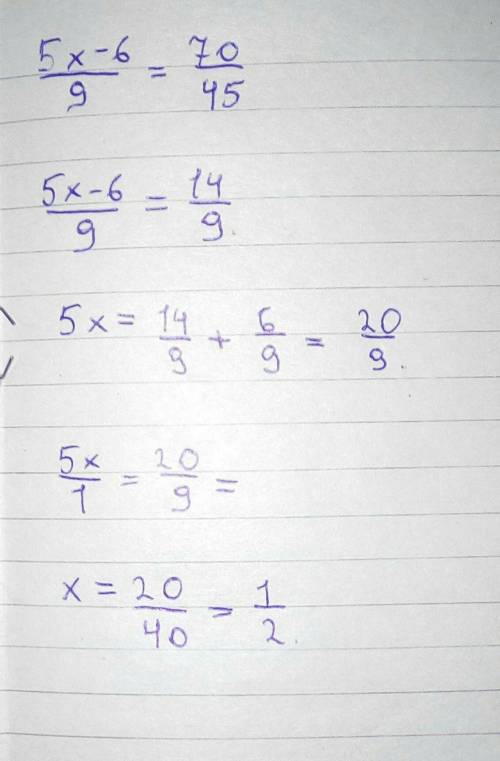 5x-6/9 = 70/45
5x-6/9 = 14/9.
5x = 14/9 + 6/9 = 20/9.
5x/1 = 20/9 =
x = 20/40 = 1/2.